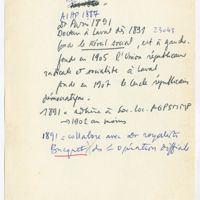 AIHP 1887
Dr Paris 1891
Docteur à Laval dès 1891 23048
fonde le réveil social, est à gauche.
fonde en 1905 l'Union républicaine
radicale et socialiste à Laval
fonde en 1907 le Cercle républicain
démocratique.
1891 = adhère à Soc. loc. AGPSMSMP
→ 1902 au moins
1891 = collabore avec Dr royaliste
Bucquet